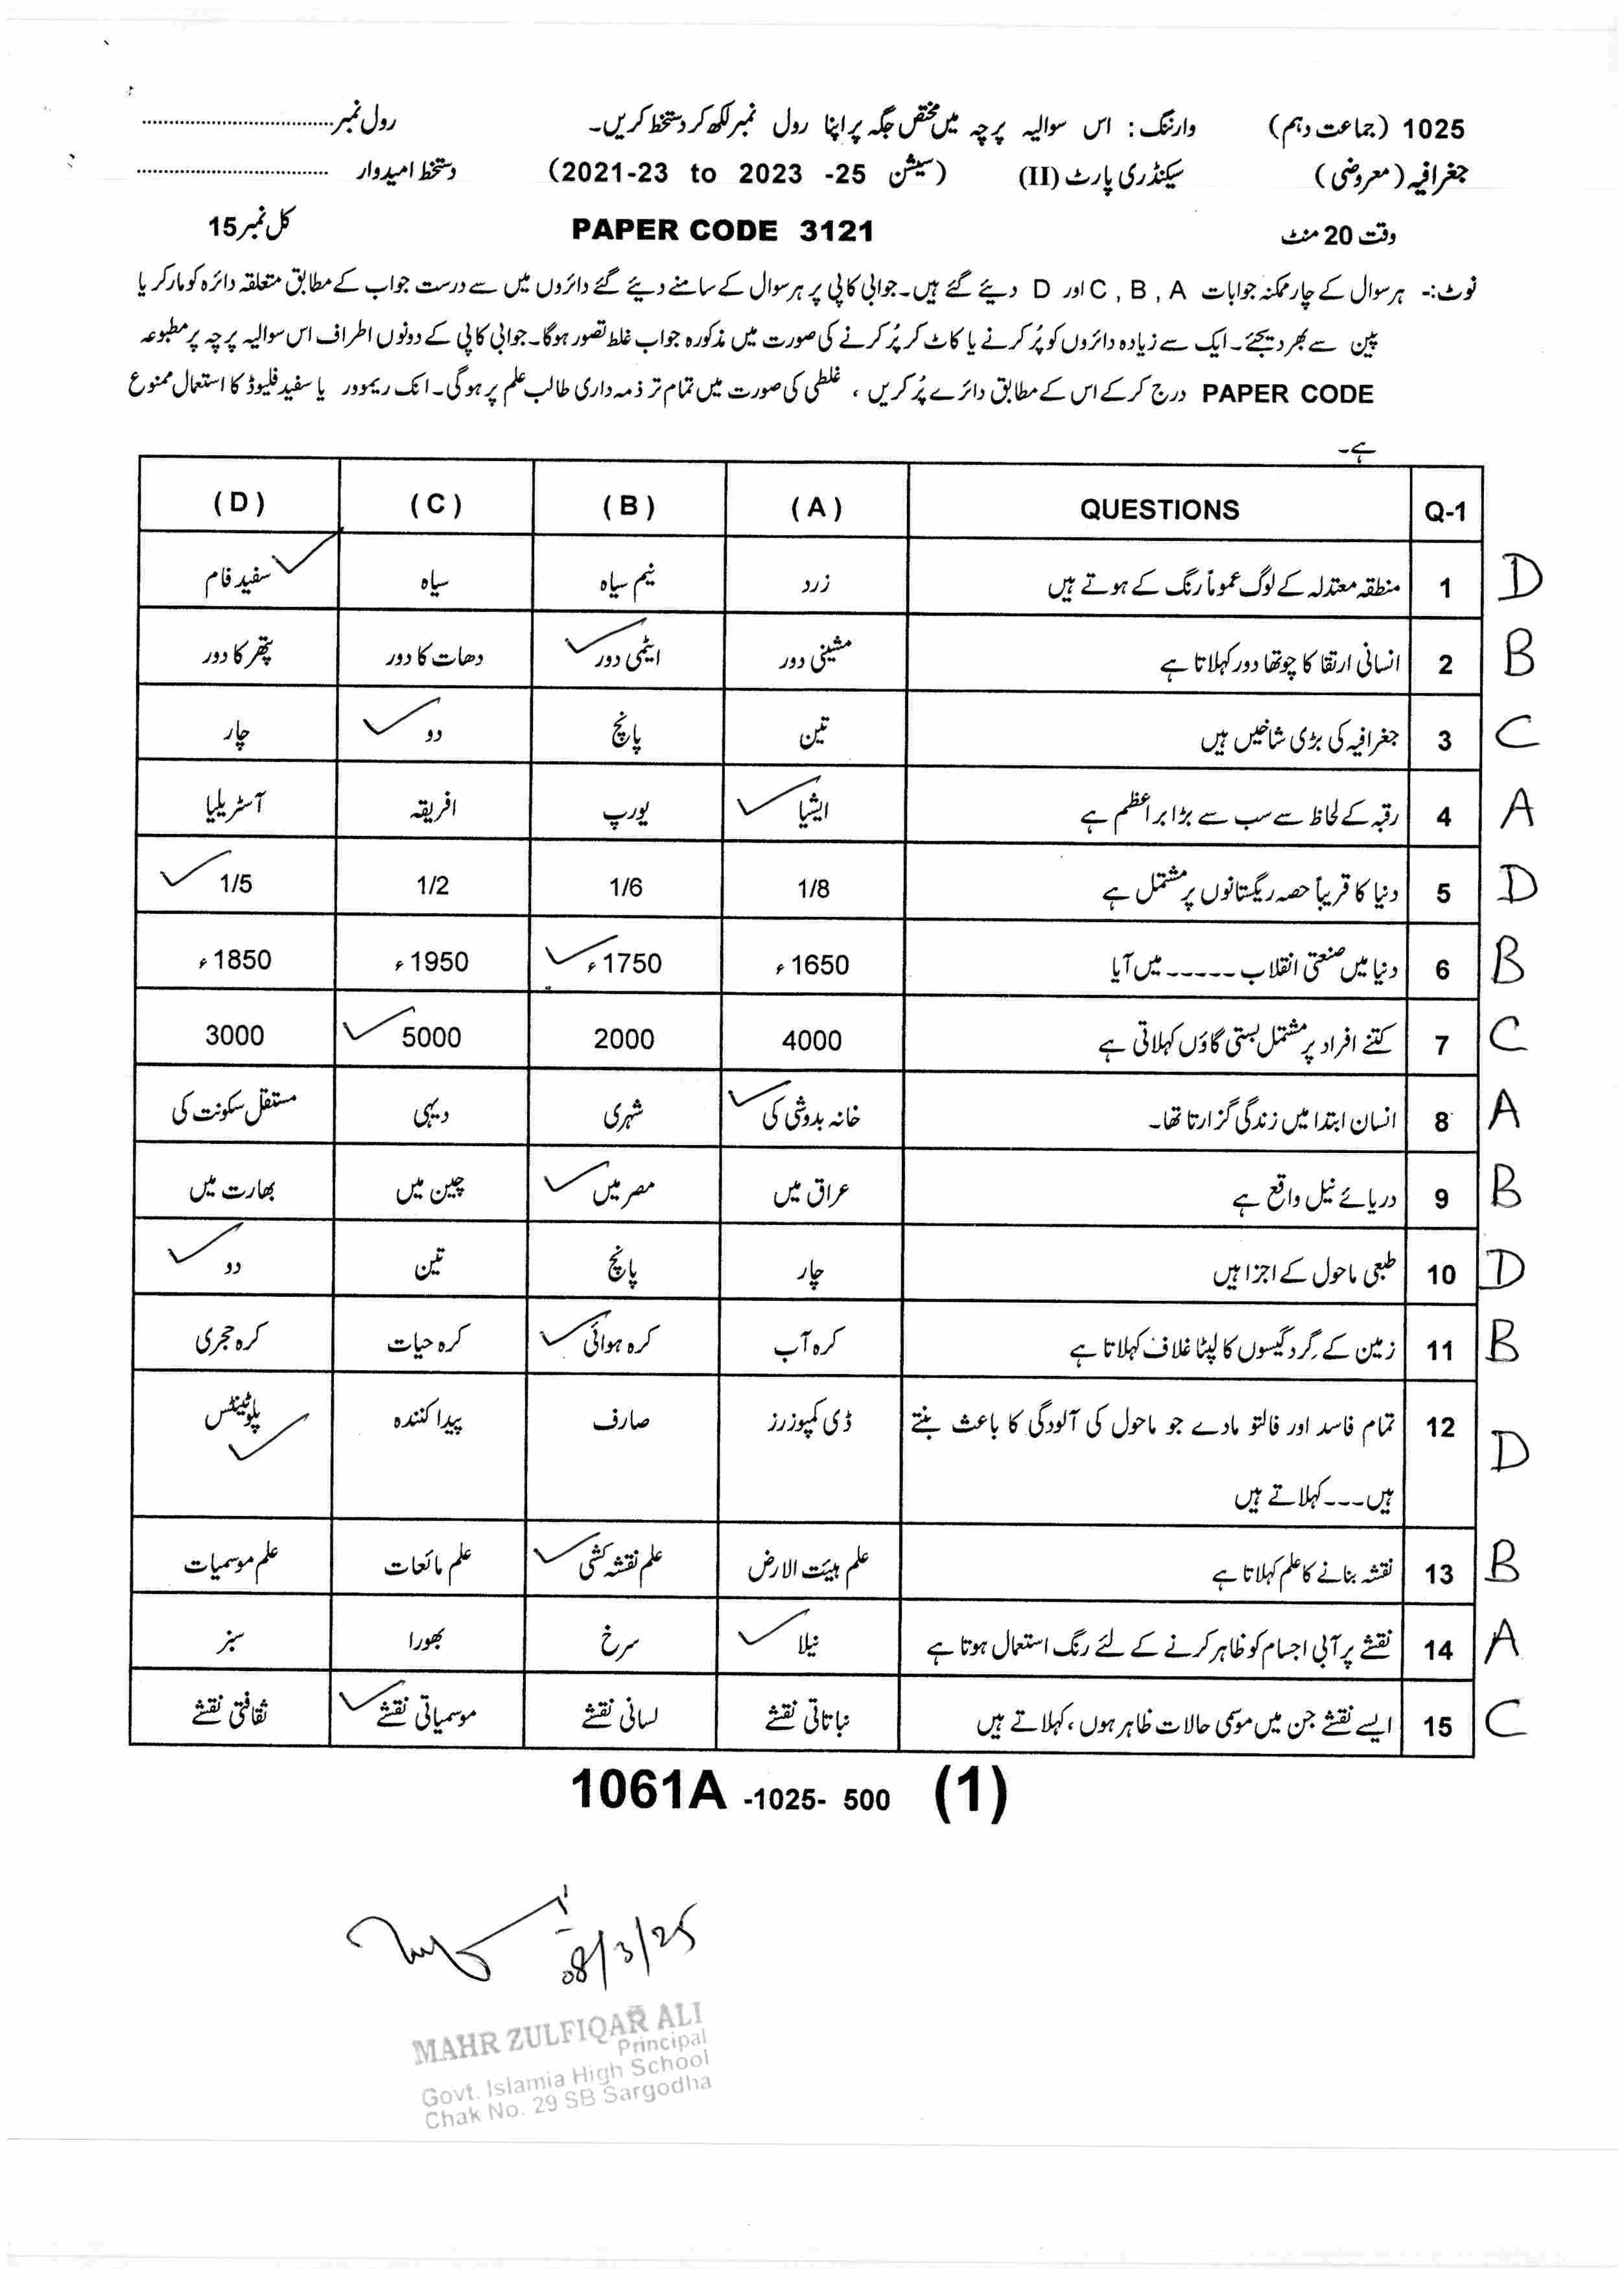 1025 (جماعت دہم) وارننگ: اس سوالیہ پرچہ میں مختص جگہ پر اپنا رول نمبر لکھ کر دستخط کریں۔ رول نمبر................................
جغرافیہ (معروضی) سیکنڈری پارٹ (II) (سیشن 2021-23 to 2023 -25) دستخط امیدوار ................................
وقت 20 منٹ PAPER CODE 3121 کل نمبر 15
نوٹ:- ہر سوال کے چار ممکنہ جوابات A , B , C اور D دیئے گئے ہیں۔ جوابی کاپی پر ہر سوال کے سامنے دیئے گئے دائروں میں سے درست جواب کے مطابق متعلقہ دائرہ کو مارکر یا
پین سے بھر دیجئے۔ ایک سے زیادہ دائروں کو پُر کرنے یا کاٹ کر پُر کرنے کی صورت میں مذکورہ جواب غلط تصور ہوگا۔ جوابی کاپی کے دونوں اطراف اس سوالیہ پرچہ پر مطبوعہ
PAPER CODE درج کر کے اس کے مطابق دائرے پُر کریں ، غلطی کی صورت میں تمام تر ذمہ داری طالب علم پر ہوگی۔ انک ریموور یا سفید فلیوڈ کا استعمال ممنوع
ہے۔
Q-1 QUESTIONS (A) (B) (C) (D)
D 1 منطقہ معتدلہ کے لوگ عموماً رنگ کے ہوتے ہیں زرد نیم سیاہ سیاہ سفید فام
B 2 انسانی ارتقا کا چوتھا دور کہلاتا ہے مشینی دور ایٹمی دور دھات کا دور پتھر کا دور
C 3 جغرافیہ کی بڑی شاخیں ہیں تین پانچ دو چار
A 4 رقبہ کے لحاظ سے سب سے بڑا براعظم ہے ایشیا یورپ افریقہ آسٹریلیا
D 5 دنیا کا قریباً حصہ ریگستانوں پر مشتمل ہے 1/8 1/6 1/2 1/5
B 6 دنیا میں صنعتی انقلاب ----- میں آیا 1650ء 1750ء 1950ء 1850ء
C 7 کتنے افراد پر مشتمل بستی گاؤں کہلاتی ہے 4000 2000 5000 3000
A 8 انسان ابتدا میں زندگی گزارتا تھا۔ خانہ بدوشی کی شہری دیہی مستقل سکونت کی
B 9 دریائے نیل واقع ہے عراق میں مصر میں چین میں بھارت میں
D 10 طبعی ماحول کے اجزا ہیں چار پانچ تین دو
B 11 زمین کے گرد گیسوں کا لپٹا غلاف کہلاتا ہے کرہ آب کرہ ہوائی کرہ حیات کرہ حجری
D 12 تمام فاسد اور فالتو مادے جو ماحول کی آلودگی کا باعث بنتے ڈی کمپوزرز صارف پیدا کنندہ پلوٹینٹس
ہیں---کہلاتے ہیں
B 13 نقشہ بنانے کا علم کہلاتا ہے علم ہیئت الارض علم نقشہ کشی علم مائعات علم موسمیات
A 14 نقشے پر آبی اجسام کو ظاہر کرنے کے لئے رنگ استعمال ہوتا ہے نیلا سرخ بھورا سبز
C 15 ایسے نقشے جن میں موسمی حالات ظاہر ہوں، کہلاتے ہیں نباتاتی نقشے لسانی نقشے موسمیاتی نقشے ثقافتی نقشے
1061A -1025- 500 (1)
08/3/25
MAHR ZULFIQAR ALI
Principal
Govt. Islamia High School
Chak No. 29 SB Sargodha